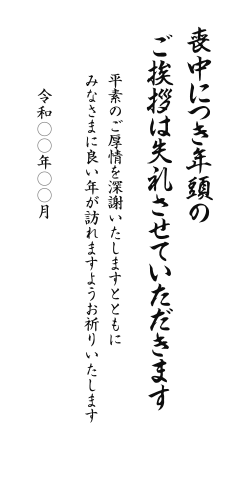 喪中につき年頭の
ご挨拶は失礼させていただきます
平素のご厚情を深謝いたしますとともに
みなさまに良い年が訪れますようお祈りいたします
令和〇〇年〇〇月